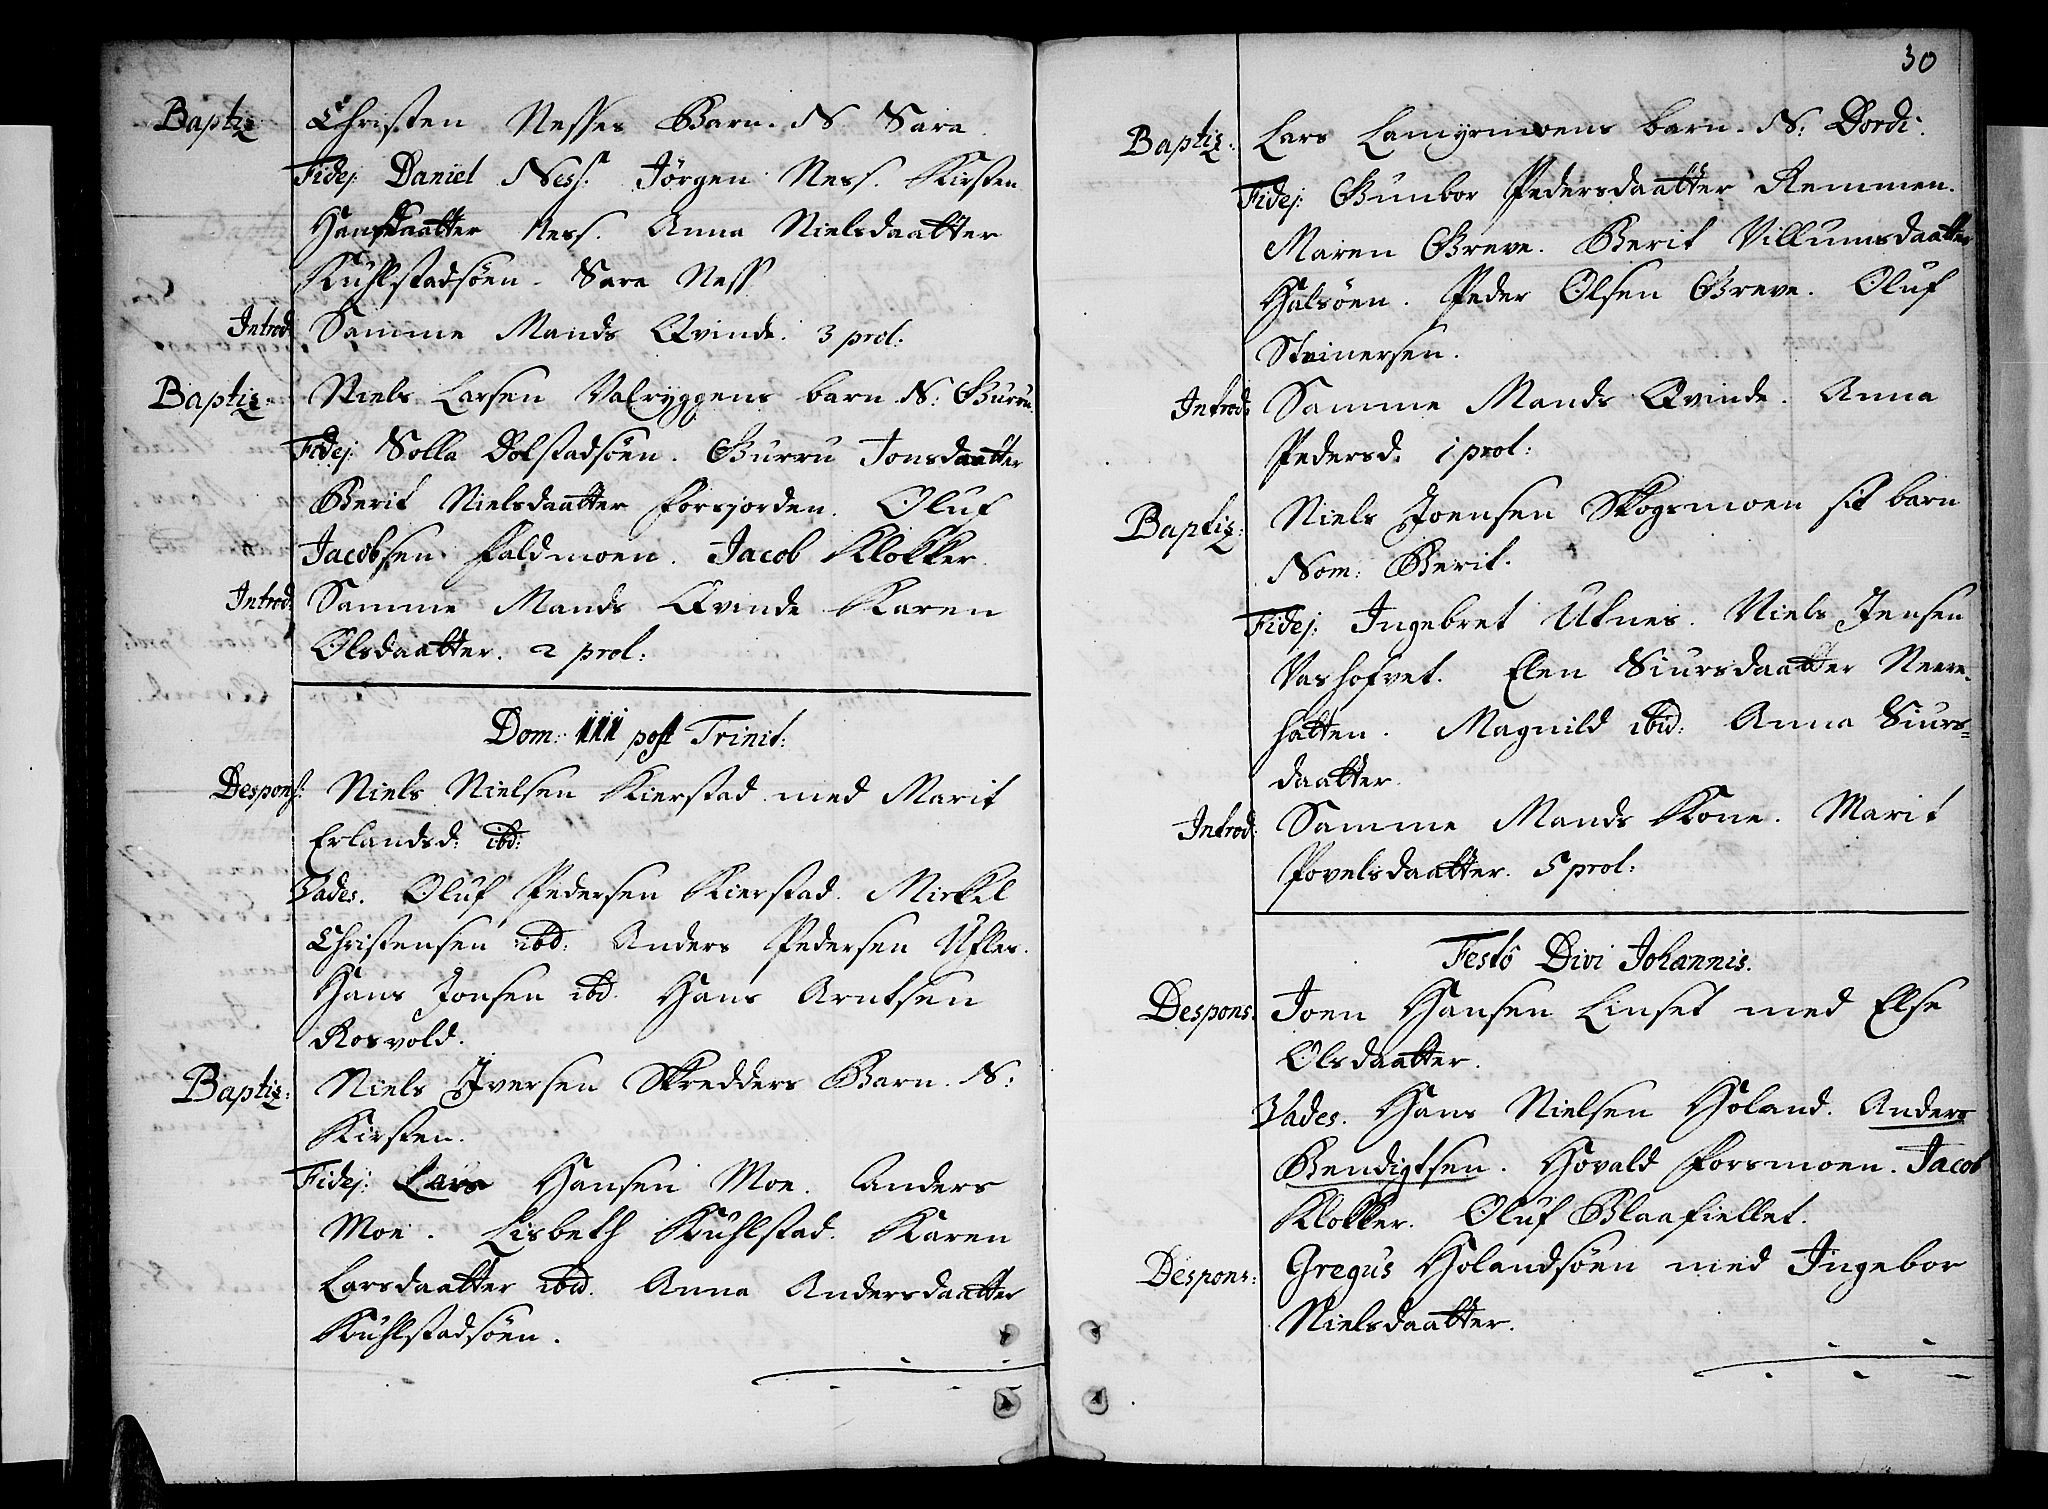 Baptiz: Christen Nesses Barn. N Sara.
Fidej: Daniel Ness. Jörgen Ness. Kirsten
Hansdaatter Ness. Anna Nielsdaatter
Kuhlstadsöen. Sara Ness
Introd: Samme Mands Qvinde. 3 prol:
Baptiz: Niels Larsen Valryggens barn N: Gurru.
Fidej: Solla Dolstadsöen. Gurru Jonsdaatter
Berit Nielsdaatter Forsjorden. Oluf
Jacobsen Faldmoen. Jacob Klokker.
Introd: Samme Mands Qvinde Karen
Olsdaatter. 2 prol:
Dom: III post Trinit:
Despons: Niels Nielsen Kierstad med Marit
Erlandsd: ibd:
Vades. Oluf Pedersen Kierstad. Mickel
Christensen ibd: Anders Pedersen Ufles.
Hans Jonsen ibd. Hans Arntsen
Rosvold.
Baptiz: Niels Iversen Skredders Barn. N:
Kirsten.
Fidej: Lars Hansen Moe. Anders
Moe. Lisbeth Kuhlstad. Karen
Larsdaatter ibid. Anna Andersdaatter
Kuhlstadsöen.
30
Baptiz: Lars Lamyrmoens barn. N: Dordi.
Fidej: Gunbor Pedersdaatter Remmen.
Maren Greve. Berit Villumsdaatter
Halsöen. Peder Olsen Greve. Oluf
Steinersen.
Introd: Samme Mands Qvinde. Anna
Pedersd. 1 prol:
Baptiz: Niels Joensen Skogsmoen sit barn
Nom: Berit.
Fidej: Ingebret Utnes. Niels Jensen
Vashofvet. Elen Siursdaatter Nerre-
hatten. Magnild ibid: Anna Siurs=
daatter.
Introd: Samme Mands Kone. Marit
Povelsdaatter. 5 prol:
Festo Divi Johannis.
Despons. Joen Hansen Linset med Else
Olsdaatter.
Vades. Hans Nielsen Holand. Anders
Bendigtsen. Hovald Forsmoen. Jacob
Klokker. Oluf Blaafiellet.
Despons: Gregus Holandsöen med Ingebor
Nielsdaatter.